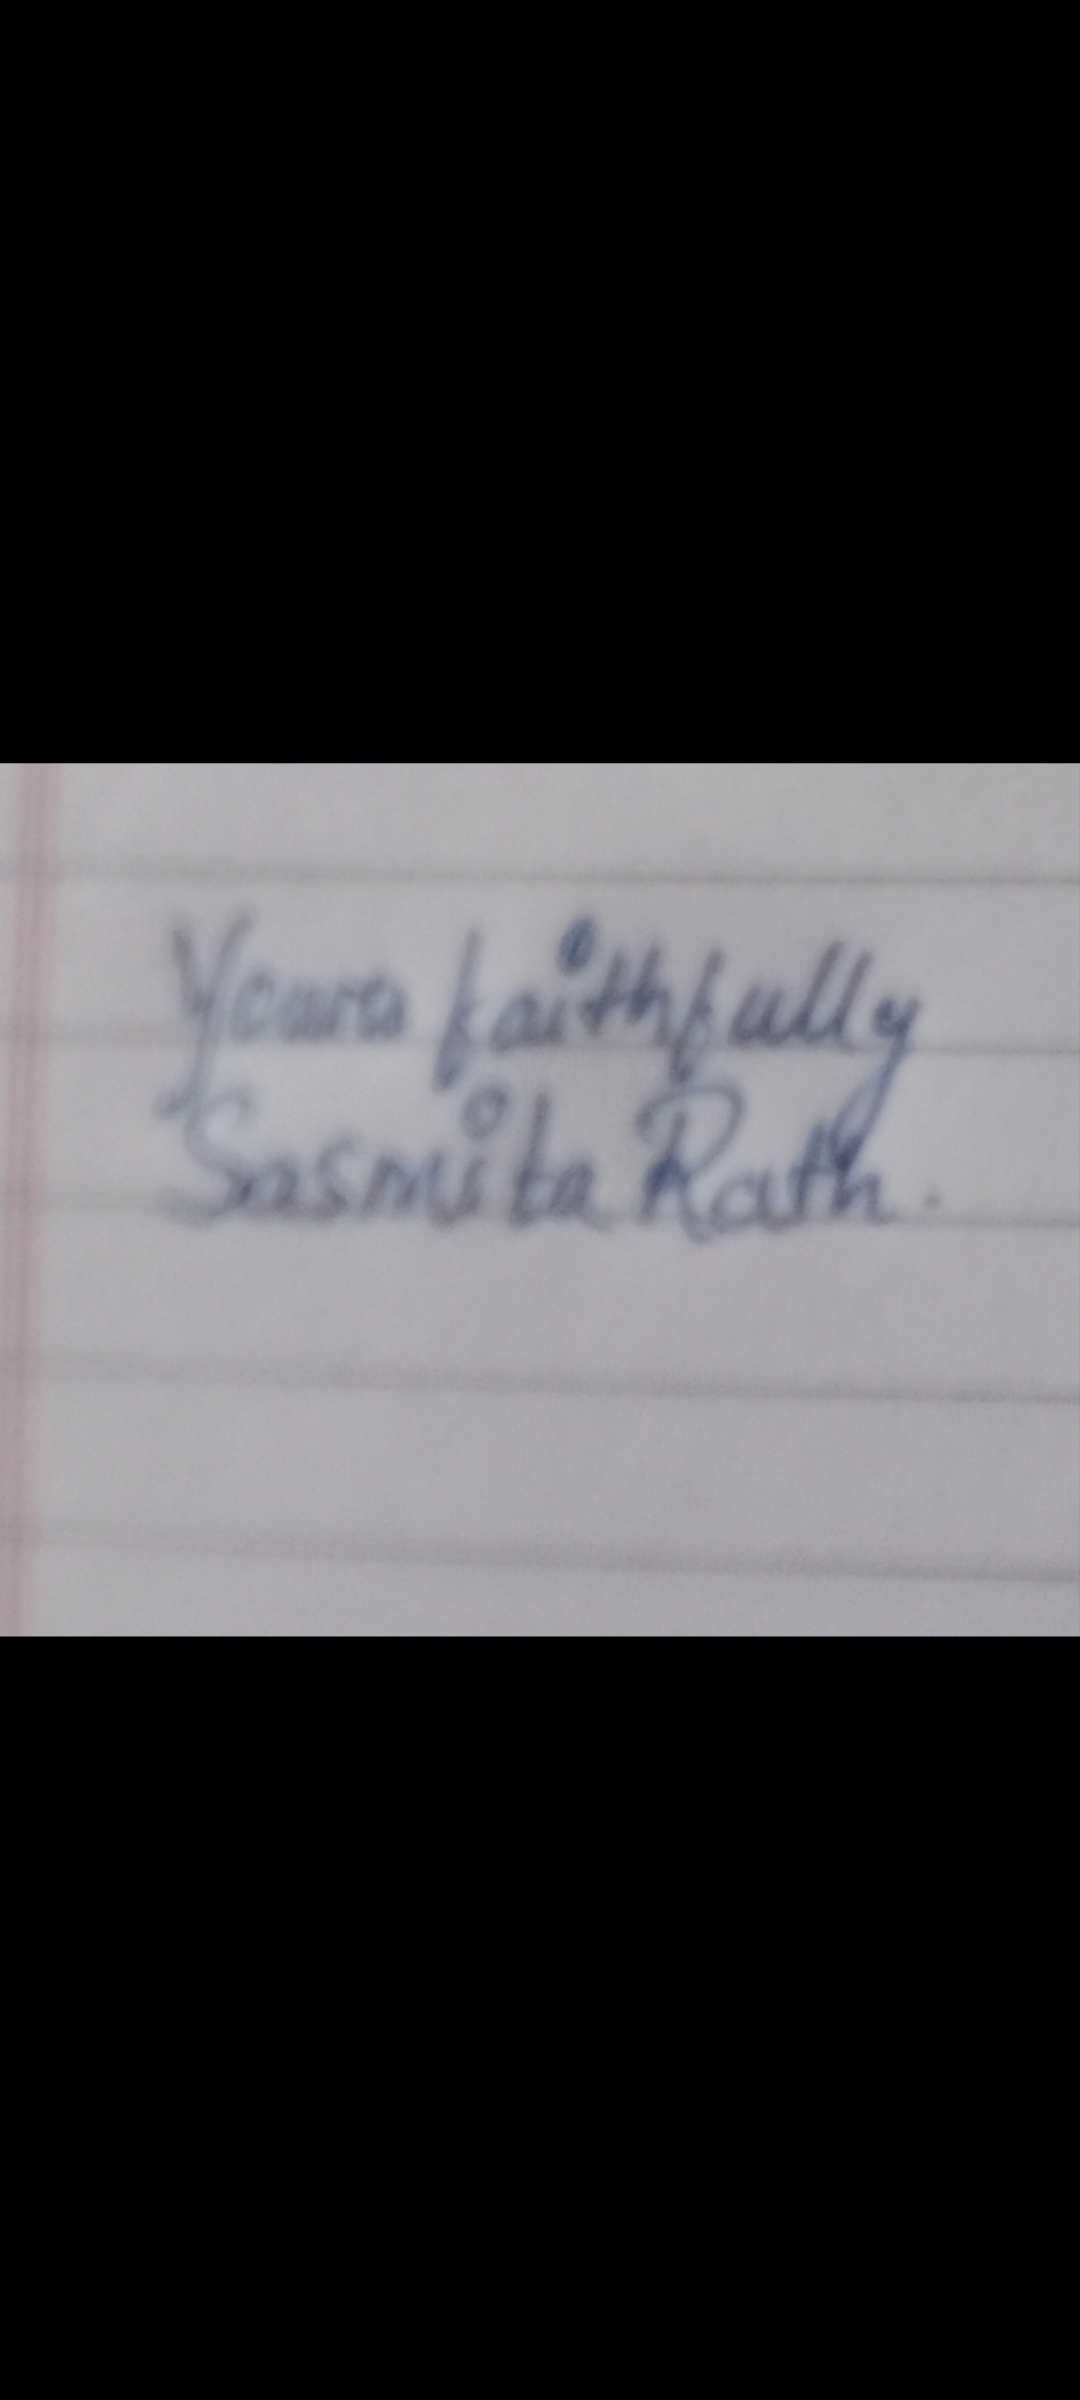 Yours faithfully
Sasmita Rath.